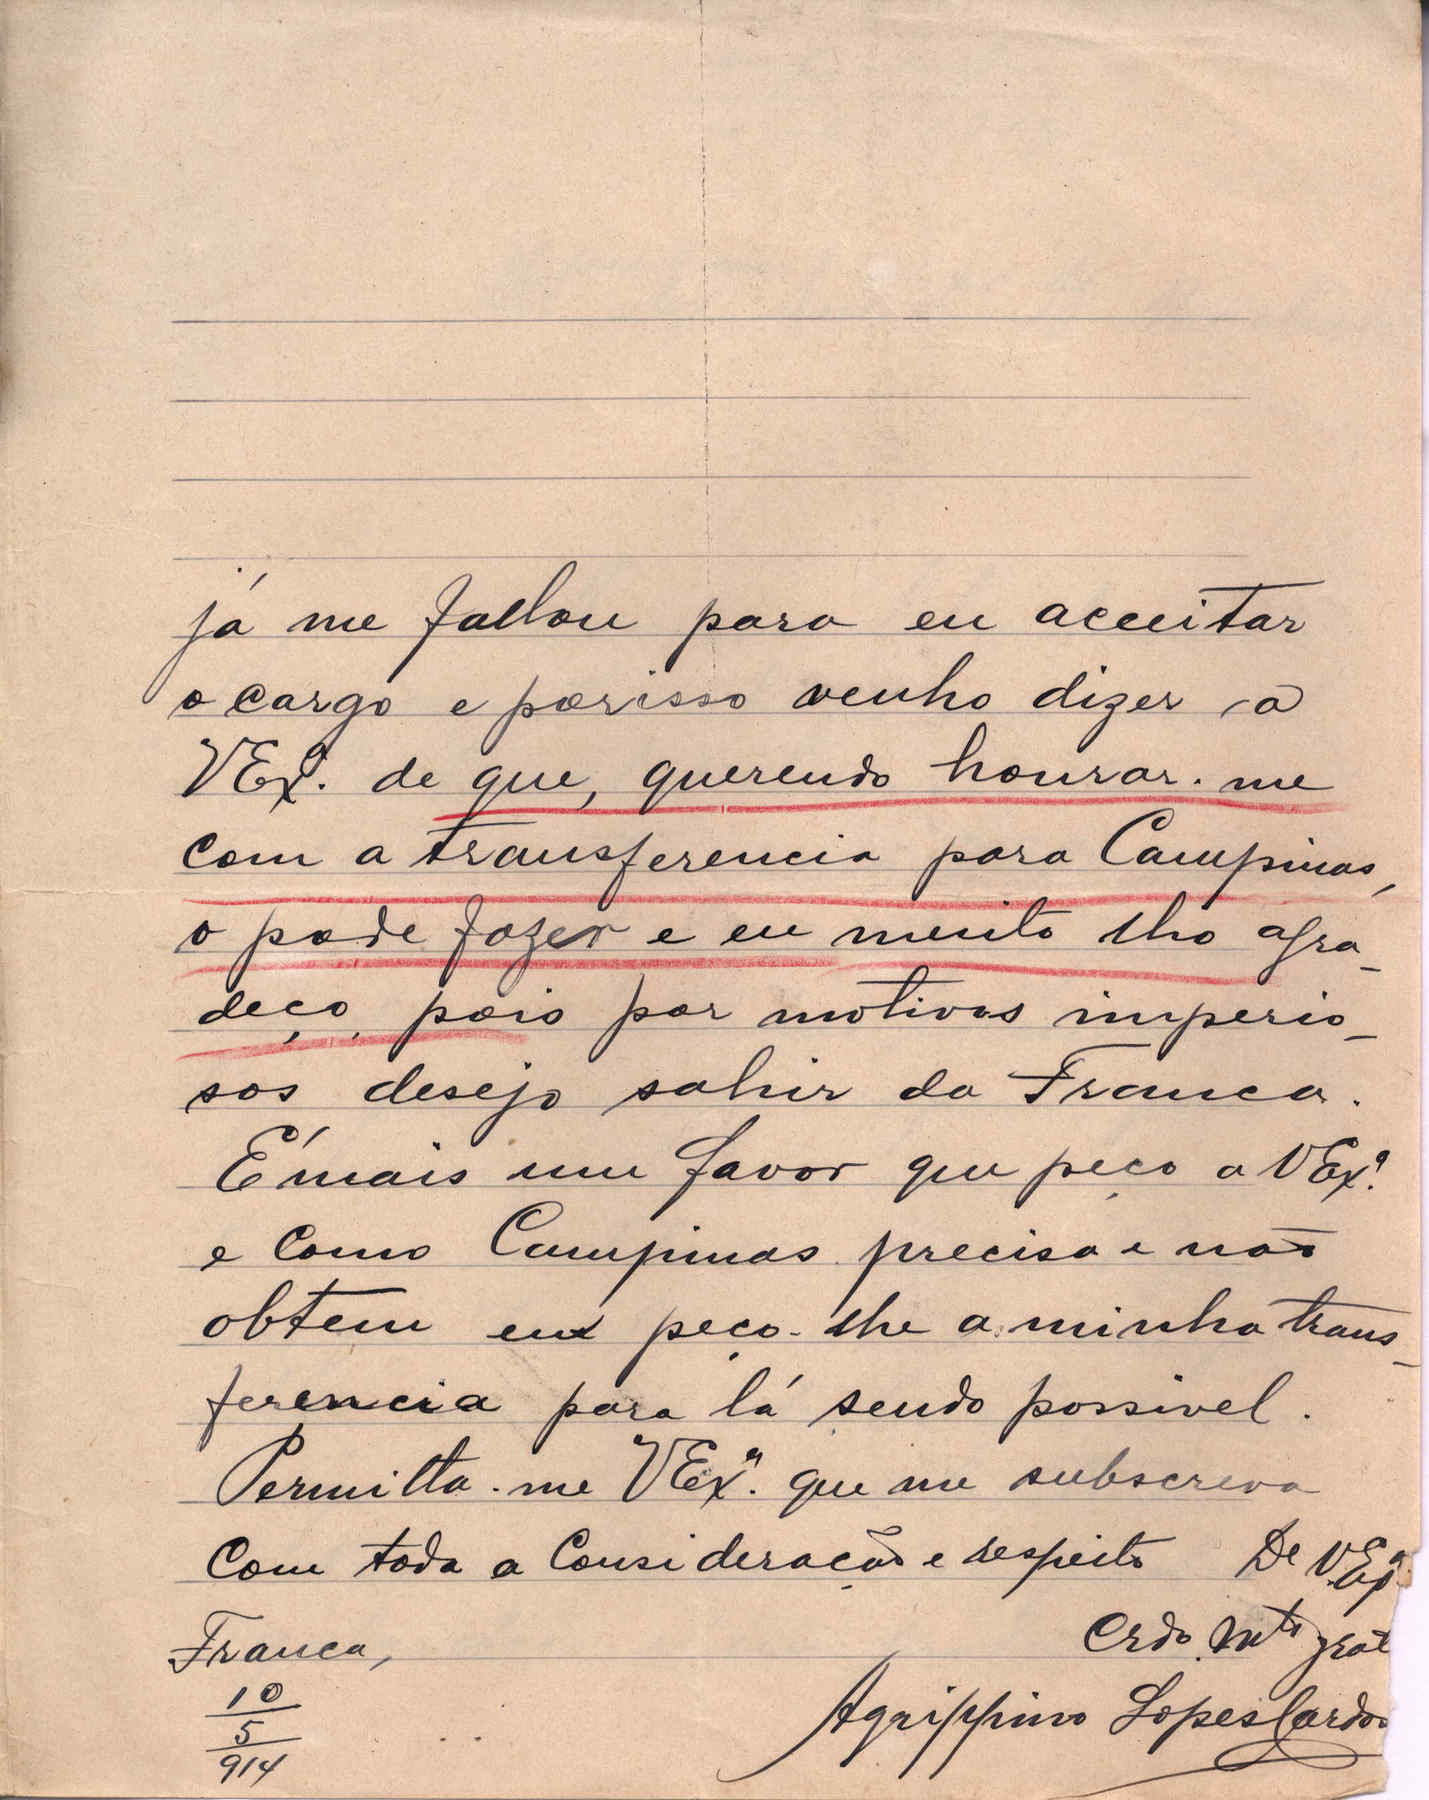 já me fallou para eu acceitar
o cargo e porisso venho dizer a
VExª. de que, querendo honrar-me
com a transferencia para Campinas,
o pode fazer e eu muito lho agra-
deço, pois por motivos imperio-
sos desejo sahir da Franca.
É mais um favor que peço a VExª.
e como Campinas precisa e não
obtem eu peço-lhe a minha trans-
ferencia para lá sendo possivel.
Permitta-me VExª. que me subscreva
com toda a consideração e respeito De V.Exª
Crdo Mto grat
Franca,
Agrippino Lopes Cardoso
10
5
914